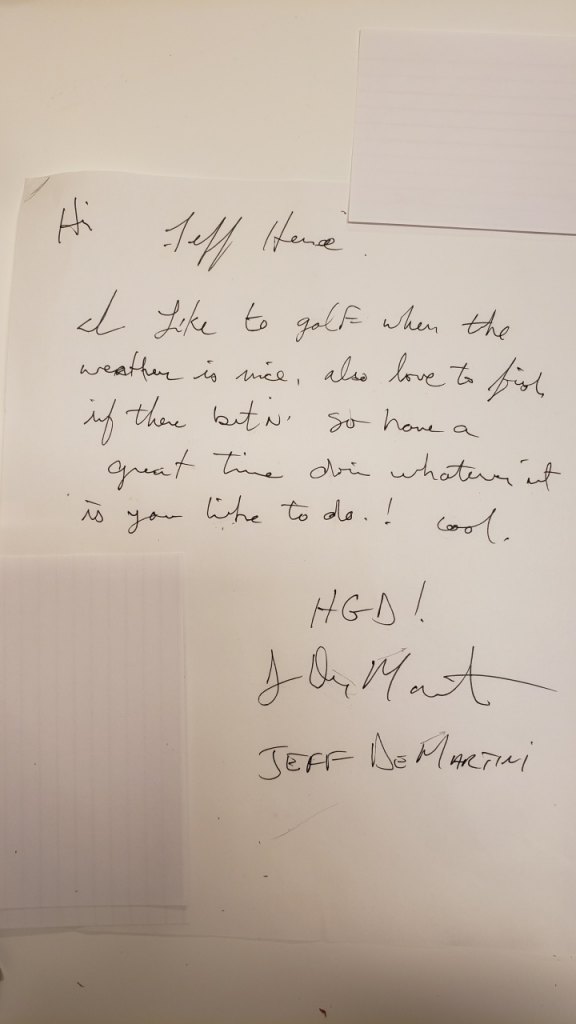 Hi Jeff Here.
I Like to golf when the
weather is nice, also love to fish,
if there bitn' so have a
great time doin whatever it
is you like to do.! cool.
HGD!
J De Mart
JEFF DEMARTINI